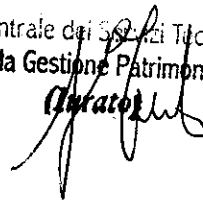 ntrale dei Servizi Tec
la Gestione Patrimon
(Iurato)